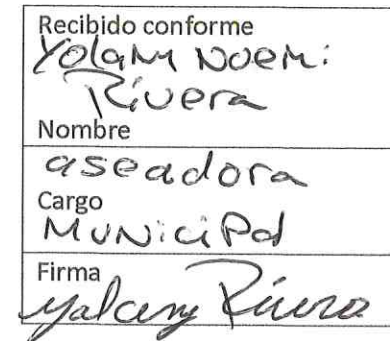 Recibido conforme
Yolany Noemi
Rivera
Nombre
aseadora
Cargo
Municipal
Firma
Yolany Rivera